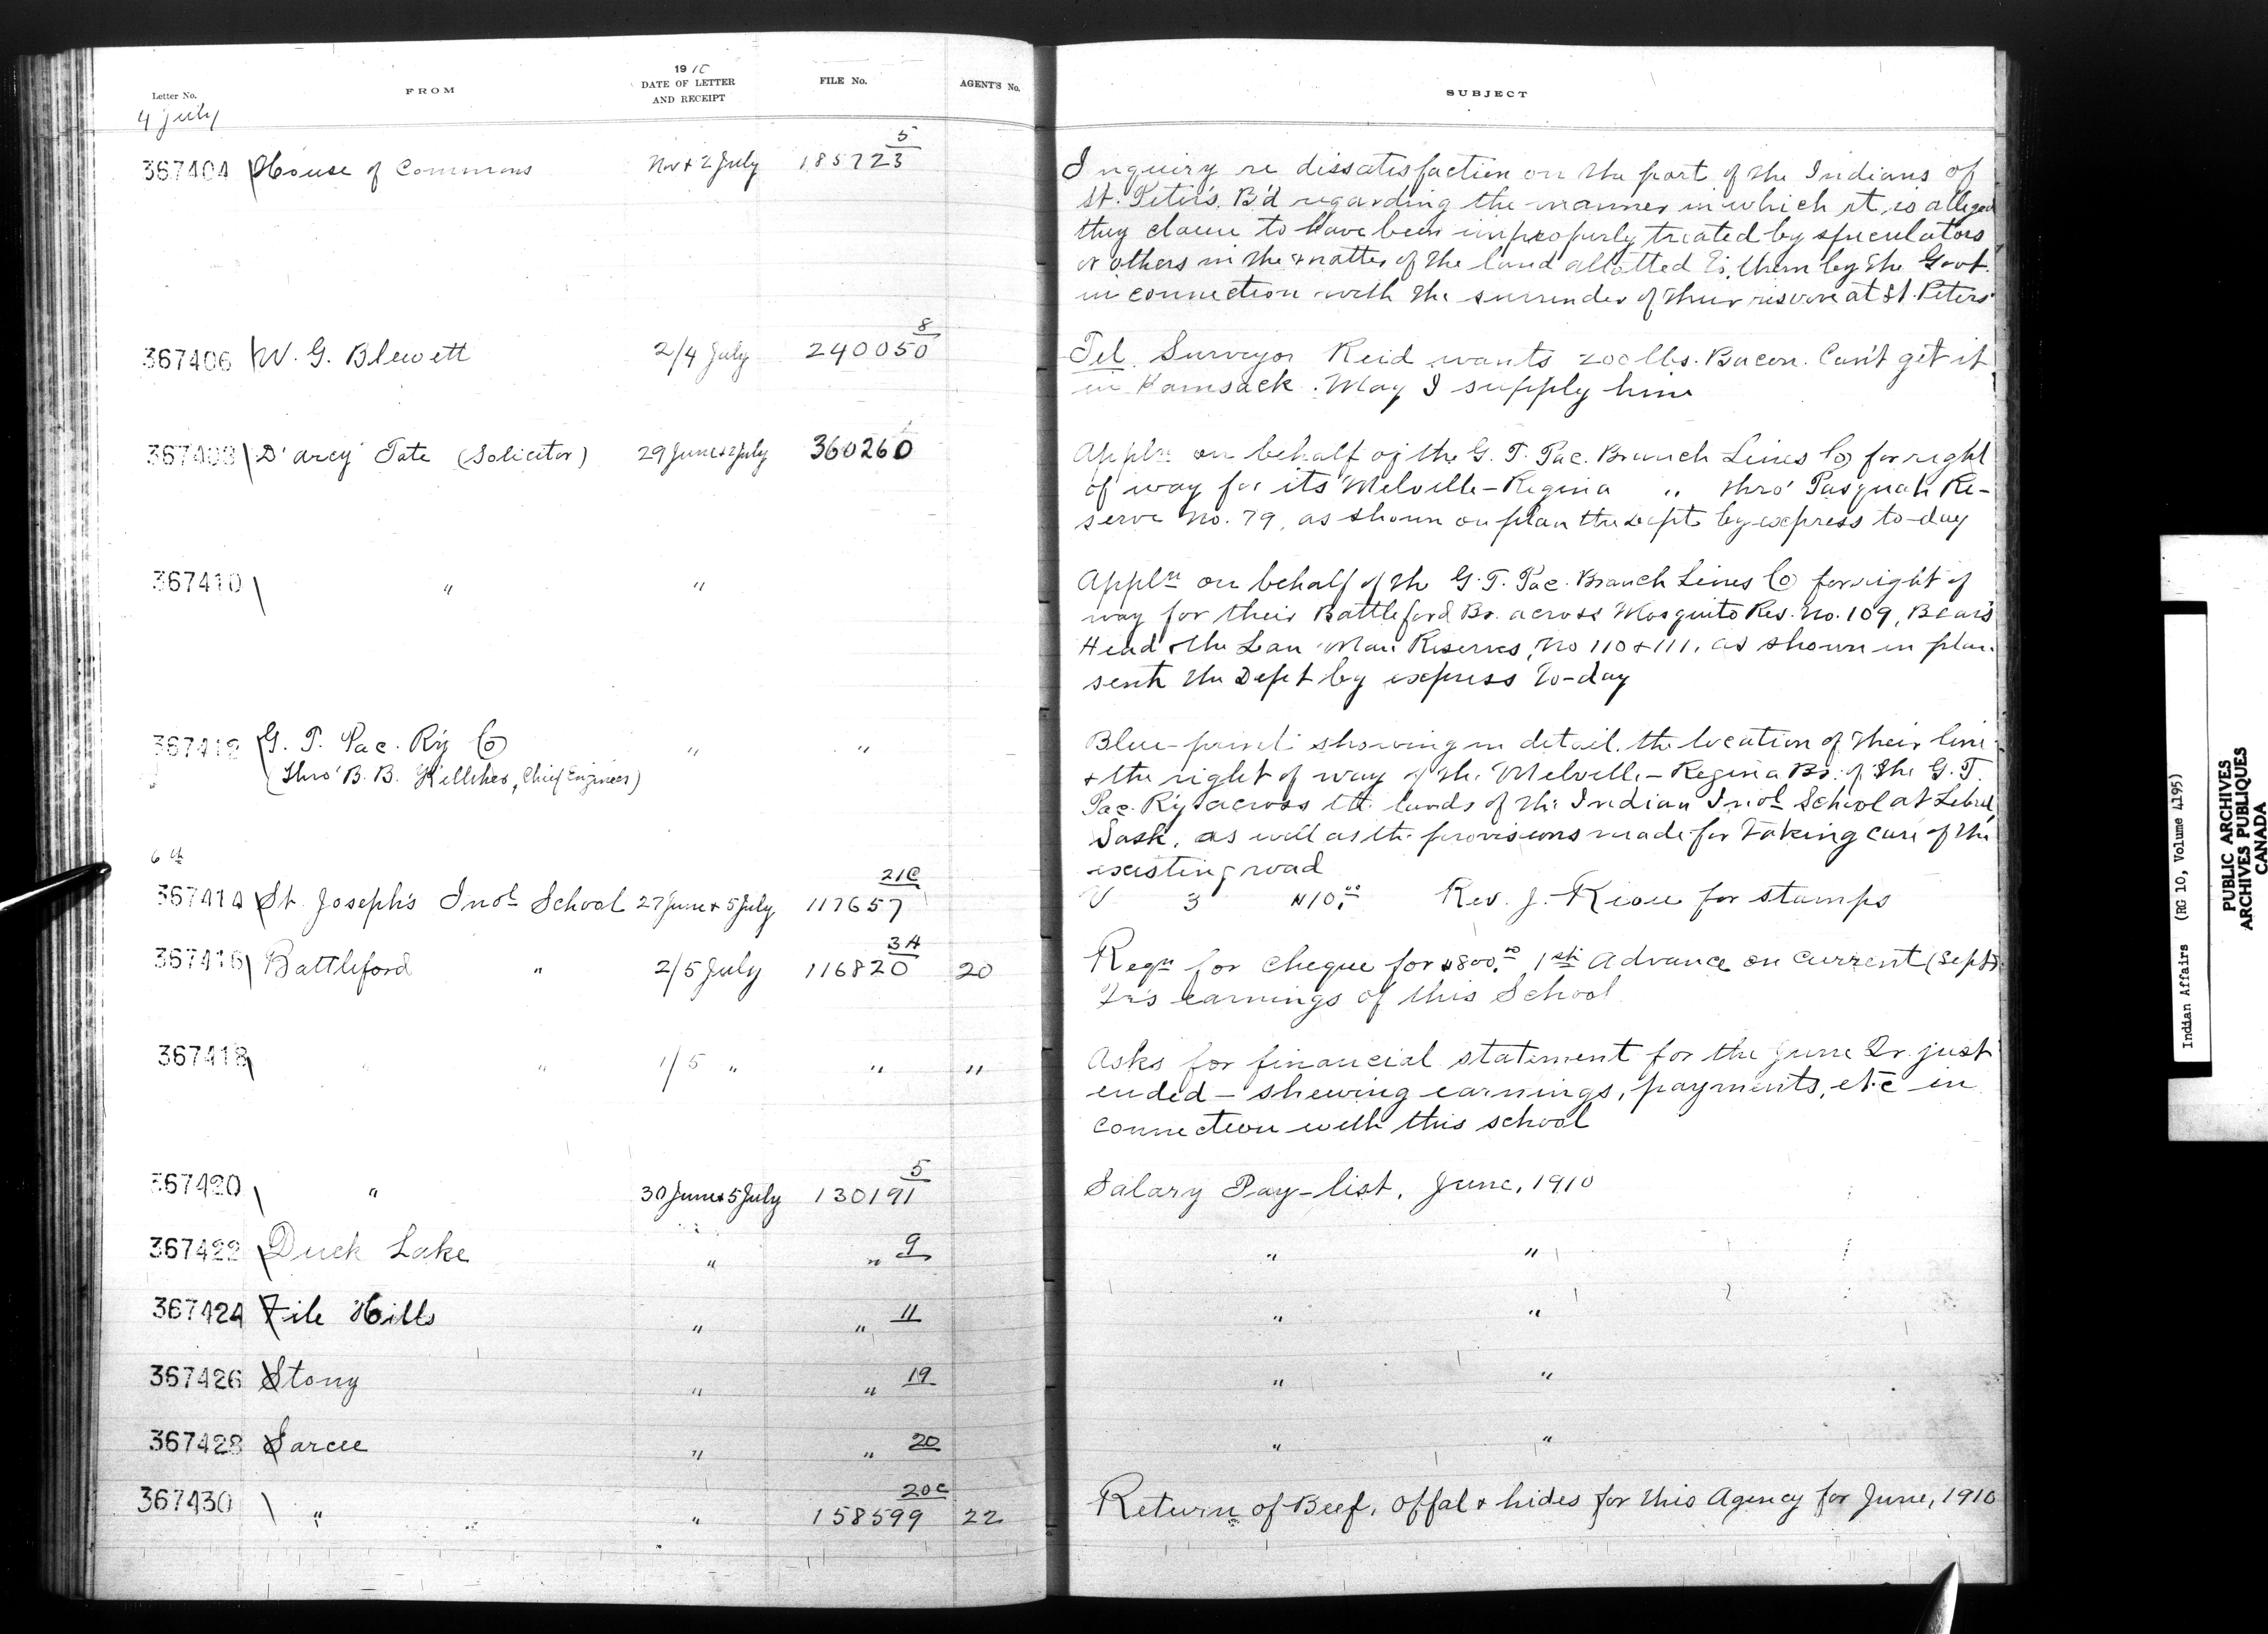 Letter No.
FROM
1910
DATE OF LETTER
AND RECEIPT
FILE No.
AGENT'S No.
4 July
367404 House of Commons Nov & 2 July 185723 5
367406 W. G. Blewett 2/4 July 240050 8
367408 D'arcy Tate (Solicitor) 29 June & 2 July 360260
367410 " "
367412 G. T. Pac. Ry Co " "
(thro' B. B. Kelliher, Chief Engineer)
6th
367414 St. Joseph's Indl School 27 June & 5 July 117657 21C
367416 Battleford " 2/5 July 116820 3A 20
367418 " " 1/5 " " "
367420 " 30 June & 5 July 130191 5
367422 Duck Lake " " 9
367424 File Hills " " 11
367426 Stony " " 19
367428 Sarcee " " 20
367430 " " 158599 20c 22
SUBJECT
Inquiry re dissatisfaction on the part of the Indians of
St. Peter's B'd regarding the manner in which it is alleged
they claim to have been improperly treated by speculators
or others in the matter of the land allotted to them by the Govt.
in connection with the surrender of their reserve at St. Peters
Tel. Surveyor Reid wants 200 lbs. Bacon. Can't get it
in Kamsack. May I supply him
Appln on behalf of the G. T. Pac. Branch Lines Co for right
of way for its Melville-Regina " thro' Pasquah Re-
serve No. 79, as shown on plan the Dept by express to-day
Appln on behalf of the G. T. Pac. Branch Lines Co for right of
way for their Battleford Br. across Mosquito Res. No. 109, Bear's
Head & the Lean Man Reserves, No 110 & 111, as shown in plan
sent the Dept by express to-day
Blue-print showing in detail the location of their line
& the right of way of the Melville-Regina Br. of the G. T.
Pac. Ry across the lands of the Indian Indl School at Lebret
Sask. as well as the provisions made for taking care of the
existing road
V 3 $10.00 Rev. J. Riou for stamps
Reqn for cheque for $800.00 1st Advance on current (Sept)
Qr's earnings of this School
Asks for financial statement for the June Qr. just
ended - shewing earnings, payments, etc in
connection with this school
Salary Pay-list, June, 1910
" "
" "
" "
" "
Return of Beef, offal & hides for this Agency for June, 1910
Indian Affairs (RG 10, Volume 4195)
PUBLIC ARCHIVES
ARCHIVES PUBLIQUES
CANADA